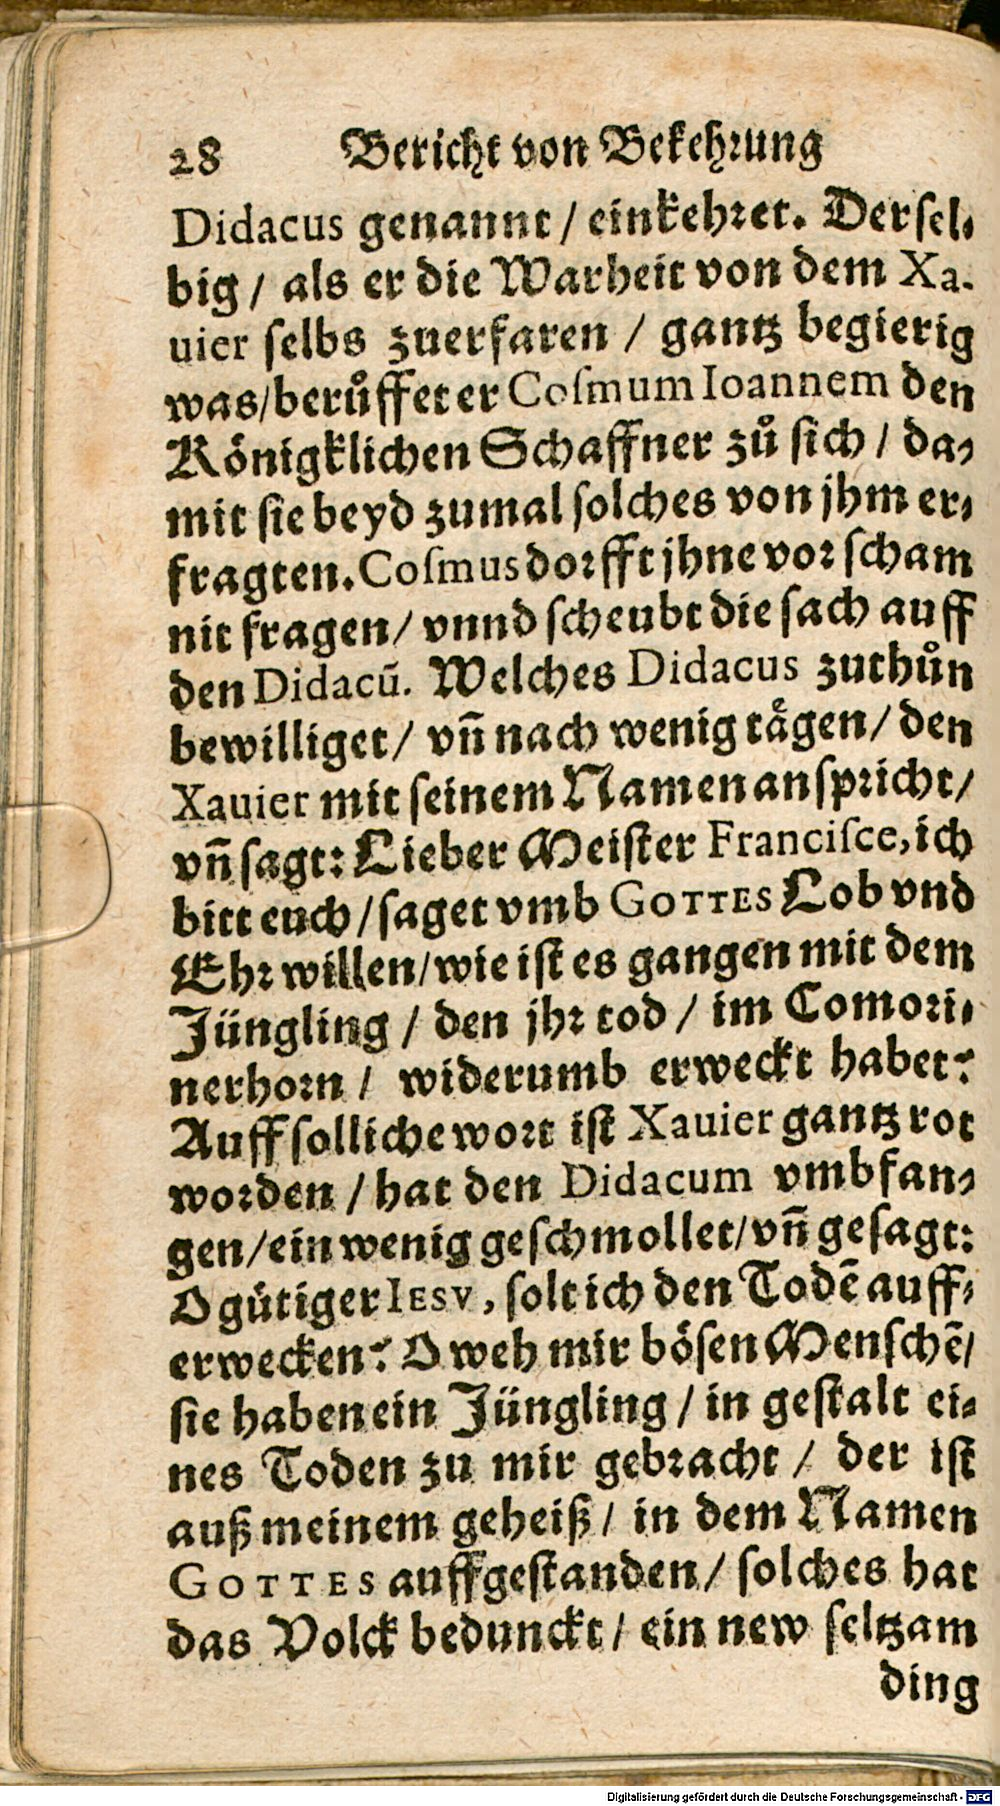 28 Bericht von Bekehrung
Didacus genannt / einkehret. Dersel-
big / als er die Warheit von dem Xa-
uier selbs zuerfaren / gantz begierig
was / berůffet er Cosmum Ioannem den
Königklichen Schaffner zů sich / da-
mit sie beyd zumal solches von jhm er-
fragten. Cosmus dorfft jhne vor scham
nit fragen / vnnd scheubt die sach auff
den Didacū. Welches Didacus zuthůn
bewilliget / vñ nach wenig tågen / den
Xauier mit seinem Namen anspricht /
vñ sagt: Lieber Meister Francisce, ich
bitt euch / saget vmb GOTTES Lob vnd
Ehr willen / wie ist es gangen mit dem
Jüngling / den jhr tod / im Comori-
nerhorn / widerumb erweckt habet?
Auff solliche wort ist Xauier gantz rot
worden / hat den Didacum vmbfan-
gen / ein wenig geschmollet / vñ gesagt:
O gütiger IESV, solt ich den Todē auff-
erwecken? O weh mir bösen Menschē /
sie haben ein Jüngling / in gestalt ei-
nes Toden zu mir gebracht / der ist
auß meinem geheiß / in dem Namen
GOTTES auffgestanden / solches hat
das Volck bedunckt / ein new seltzam
ding
Digitalisierung gefördert durch die Deutsche Forschungsgemeinschaft - DFG